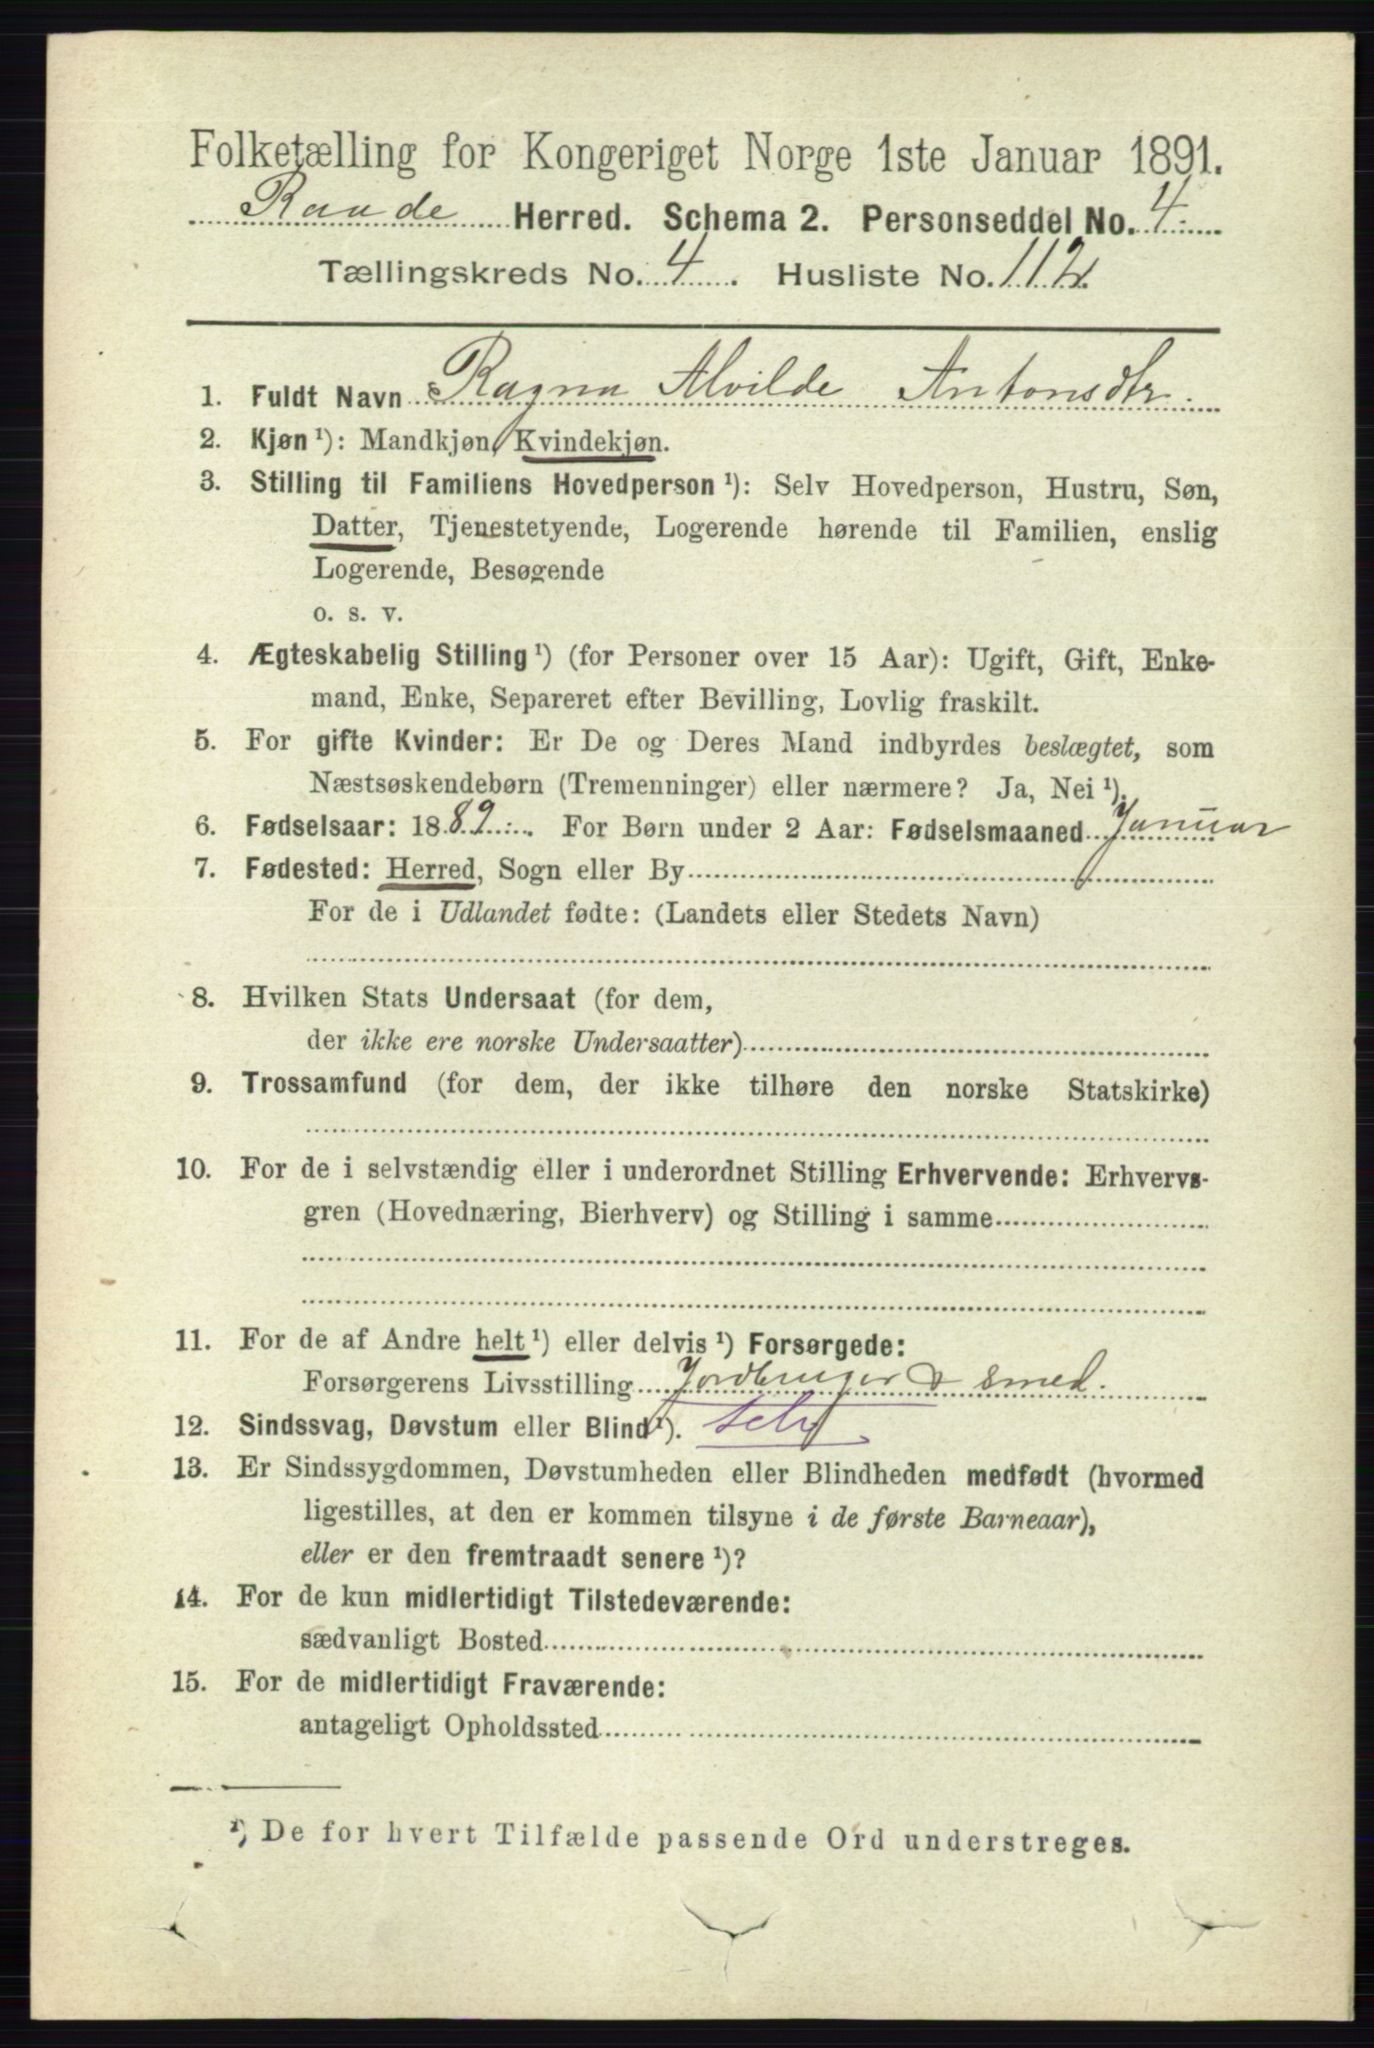 Folketælling for Kongeriget Norge 1ste Januar 1891.
Raade Herred. Schema 2. Personseddel No. 4.
Tællingskreds No. 4. Husliste No. 112.
1. Fuldt Navn Ragna Alvilde Antonsdtr.
2. Kjøn ¹): Mandkjøn, Kvindekjøn.
3. Stilling til Familiens Hovedperson ¹): Selv Hovedperson, Hustru, Søn,
Datter, Tjenestetyende, Logerende hørende til Familien, enslig
Logerende, Besøgende
o. s. v.
4. Ægteskabelig Stilling ¹) (for Personer over 15 Aar): Ugift, Gift, Enke-
mand, Enke, Separeret efter Bevilling, Lovlig fraskilt.
5. For gifte Kvinder: Er De og Deres Mand indbyrdes beslægtet, som
Næstsøskendebørn (Tremenninger) eller nærmere? Ja, Nei ¹).
6. Fødselsaar: 1889. For Børn under 2 Aar: Fødselsmaaned Januar
7. Fødested: Herred, Sogn eller By
For de i Udlandet fødte: (Landets eller Stedets Navn)
8. Hvilken Stats Undersaat (for dem,
der ikke ere norske Undersaatter)
9. Trossamfund (for dem, der ikke tilhøre den norske Statskirke)
10. For de i selvstændig eller i underordnet Stilling Erhvervende: Erhvervs-
gren (Hovednæring, Bierhverv) og Stilling i samme
11. For de af Andre helt ¹) eller delvis ¹) Forsørgede:
Forsørgerens Livsstilling Jordbruger & smed.
12. Sindssvag, Døvstum eller Blind ¹). selv
13. Er Sindssygdommen, Døvstumheden eller Blindheden medfødt (hvormed
ligestilles, at den er kommen tilsyne i de første Barneaar),
eller er den fremtraadt senere ¹)?
14. For de kun midlertidigt Tilstedeværende:
sædvanligt Bosted
15. For de midlertidigt Fraværende:
antageligt Opholdssted
¹) De for hvert Tilfælde passende Ord understreges.